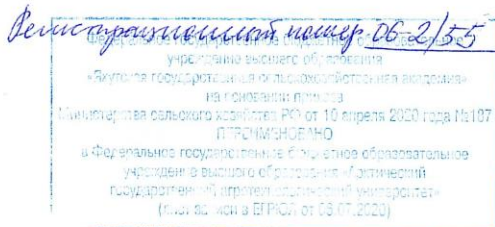 Регистрационный номер 06-2/55
Федеральное государственное бюджетное образовательное
учреждение высшего образования
«Якутская государственная сельскохозяйственная академия»
на основании приказа
Министерства сельского хозяйства РФ от 10 апреля 2020 года №187
ПЕРЕИМЕНОВАНО
в Федеральное государственное бюджетное образовательное
учреждение высшего образования «Арктический
государственный агротехнологический университет»
(лист записи в ЕГРЮЛ от 08.07.2020)